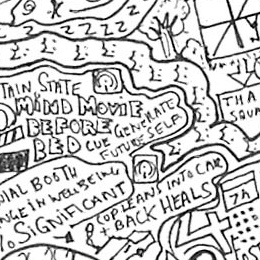 TAIN STATE
MIND MOVIE
BEFORE
BED CUE GENERATE
FUTURE SELF
THA
SQUA
NIAL BOOTH
NGE IN WELLBEING
% SIGNIFICANT
COP LEANS INTO CAR
+ BACK HEALS
7A